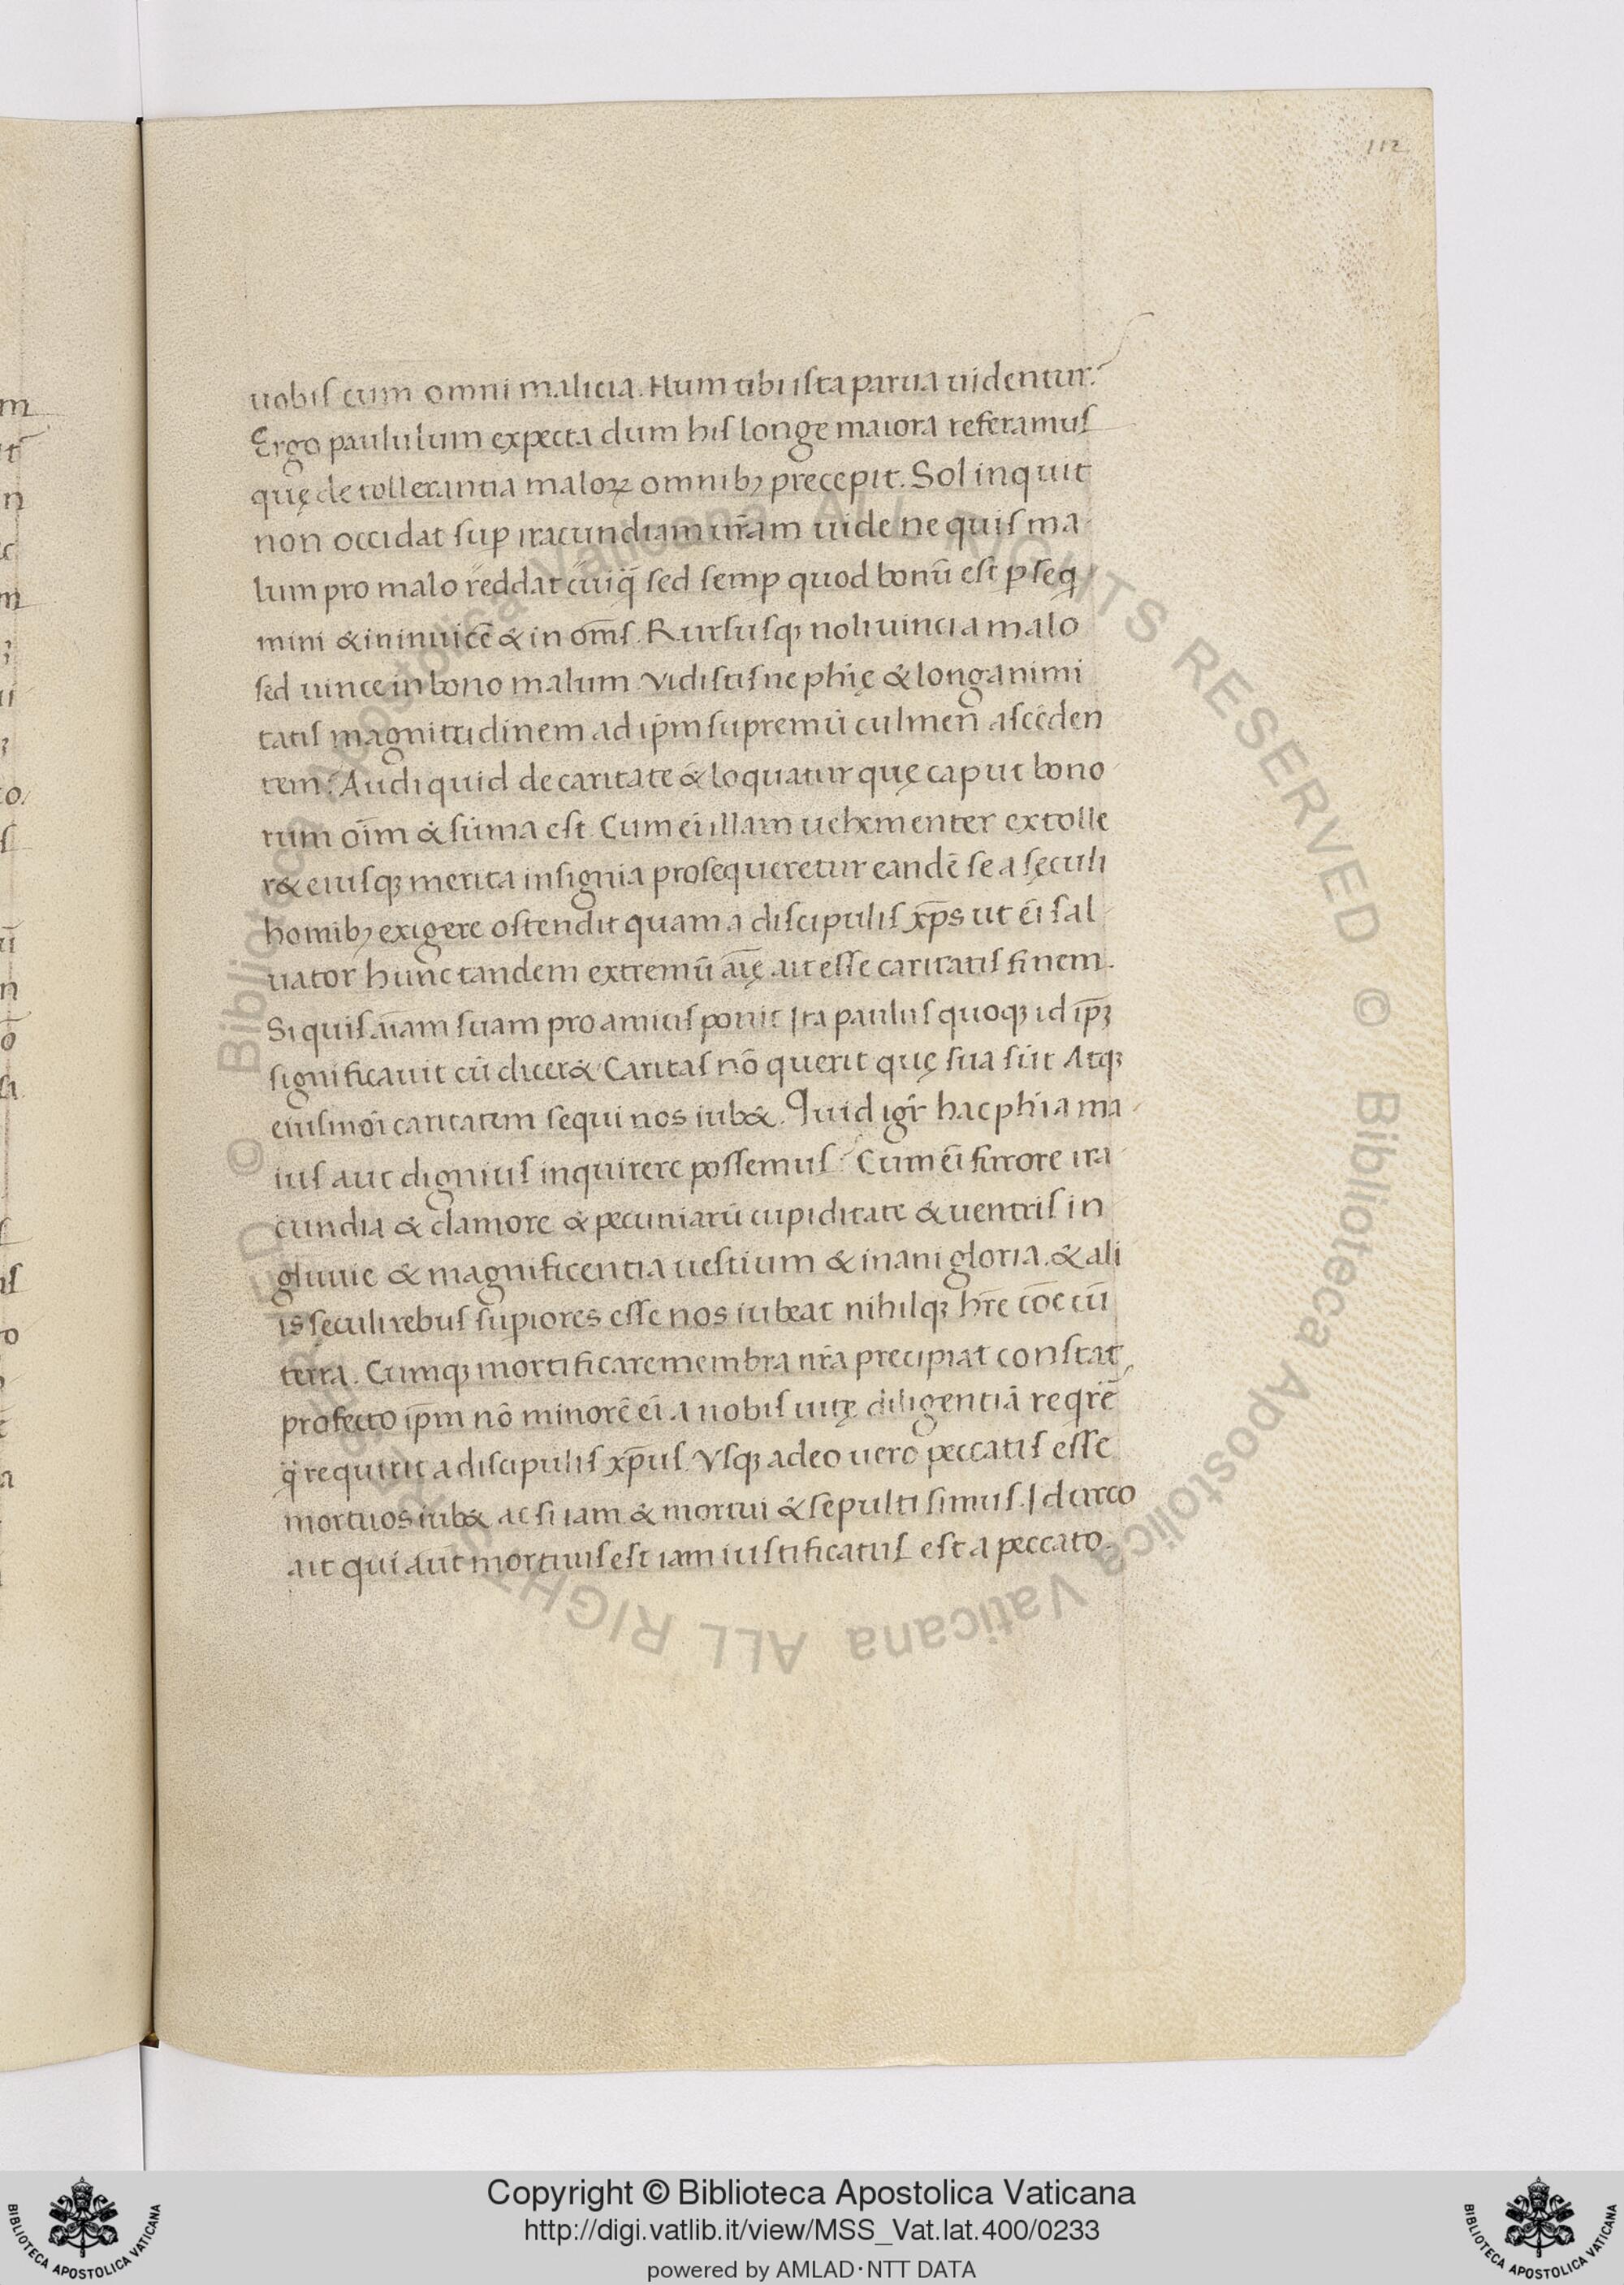 112
uobis cum omni malicia. Num tibi ista parua uidentur?
Ergo paululum expecta dum his longe maiora referamus
quę de tollerantia maloꝝ omnibꝫ precepit. Sol inquit
non occidat suꝑ iracundiam ur̄am uide ne quis ma-
lum pro malo reddat cuiq̄ sed semꝑ quod bonū est ꝑseq
mini & in inuicē & in om̄s. Rursusqꝫ noli uinci a malo
sed uince in bono malum. Vidistis ne phię & longanimi
tatis magnitudinem ad ip̄m supremū culmen ascēden
tem? Audi quid de caritate & loquatur quę caput bono-
rum oīm & sūma est. Cum ei illam uehementer extolle
r& eiusqꝫ merita insignia prosequeretur eandē se a sęculi
homibꝫ exigere ostendit quam a discipulis xp̄s ut ei sal-
uator hunc tandem extremū aīę ait esse caritatis finem.
Si quis aīam suam pro amicis ponit Ita paulus quoqꝫ id ip̄ꝫ
significauit cū dicer& Caritas nō querit quę sua sūt Atqꝫ
eiusmōi caritatem sequi nos iub&. Quid igr̄ hac phīa ma-
ius aut dignius inquirere possemus? Cum eī furore ira-
cundia & clamore & pecuniarū cupiditate & uentris in
gluuie & magnificentia uestium & inani gloria. & ali
is seculi rebus suꝑiores esse nos iubeat nihilqꝫ hr̄e cōe cū
terra. Cumqꝫ mortificare membra nr̄a precipiat constat
profecto ip̄m nō minorē eī a nobis uitę diligentiā reqrē
q̄ requirit a discipulis xp̄us. Vsqꝫ adeo uero peccatis esse
mortuos iub& ac si iam & mortui & sepulti simus. Idcirco
ait qui aut mortuus est iam iustificatus est a peccato.
© Biblioteca Apostolica Vaticana ALL RIGHTS RESERVED © Biblioteca Apostolica Vaticana ALL RIGHTS RESERVED
Copyright © Biblioteca Apostolica Vaticana
http://digi.vatlib.it/view/MSS_Vat.lat.400/0233
powered by AMLAD·NTT DATA
BIBLIOTECA APOSTOLICA VATICANA
BIBLIOTECA APOSTOLICA VATICANA